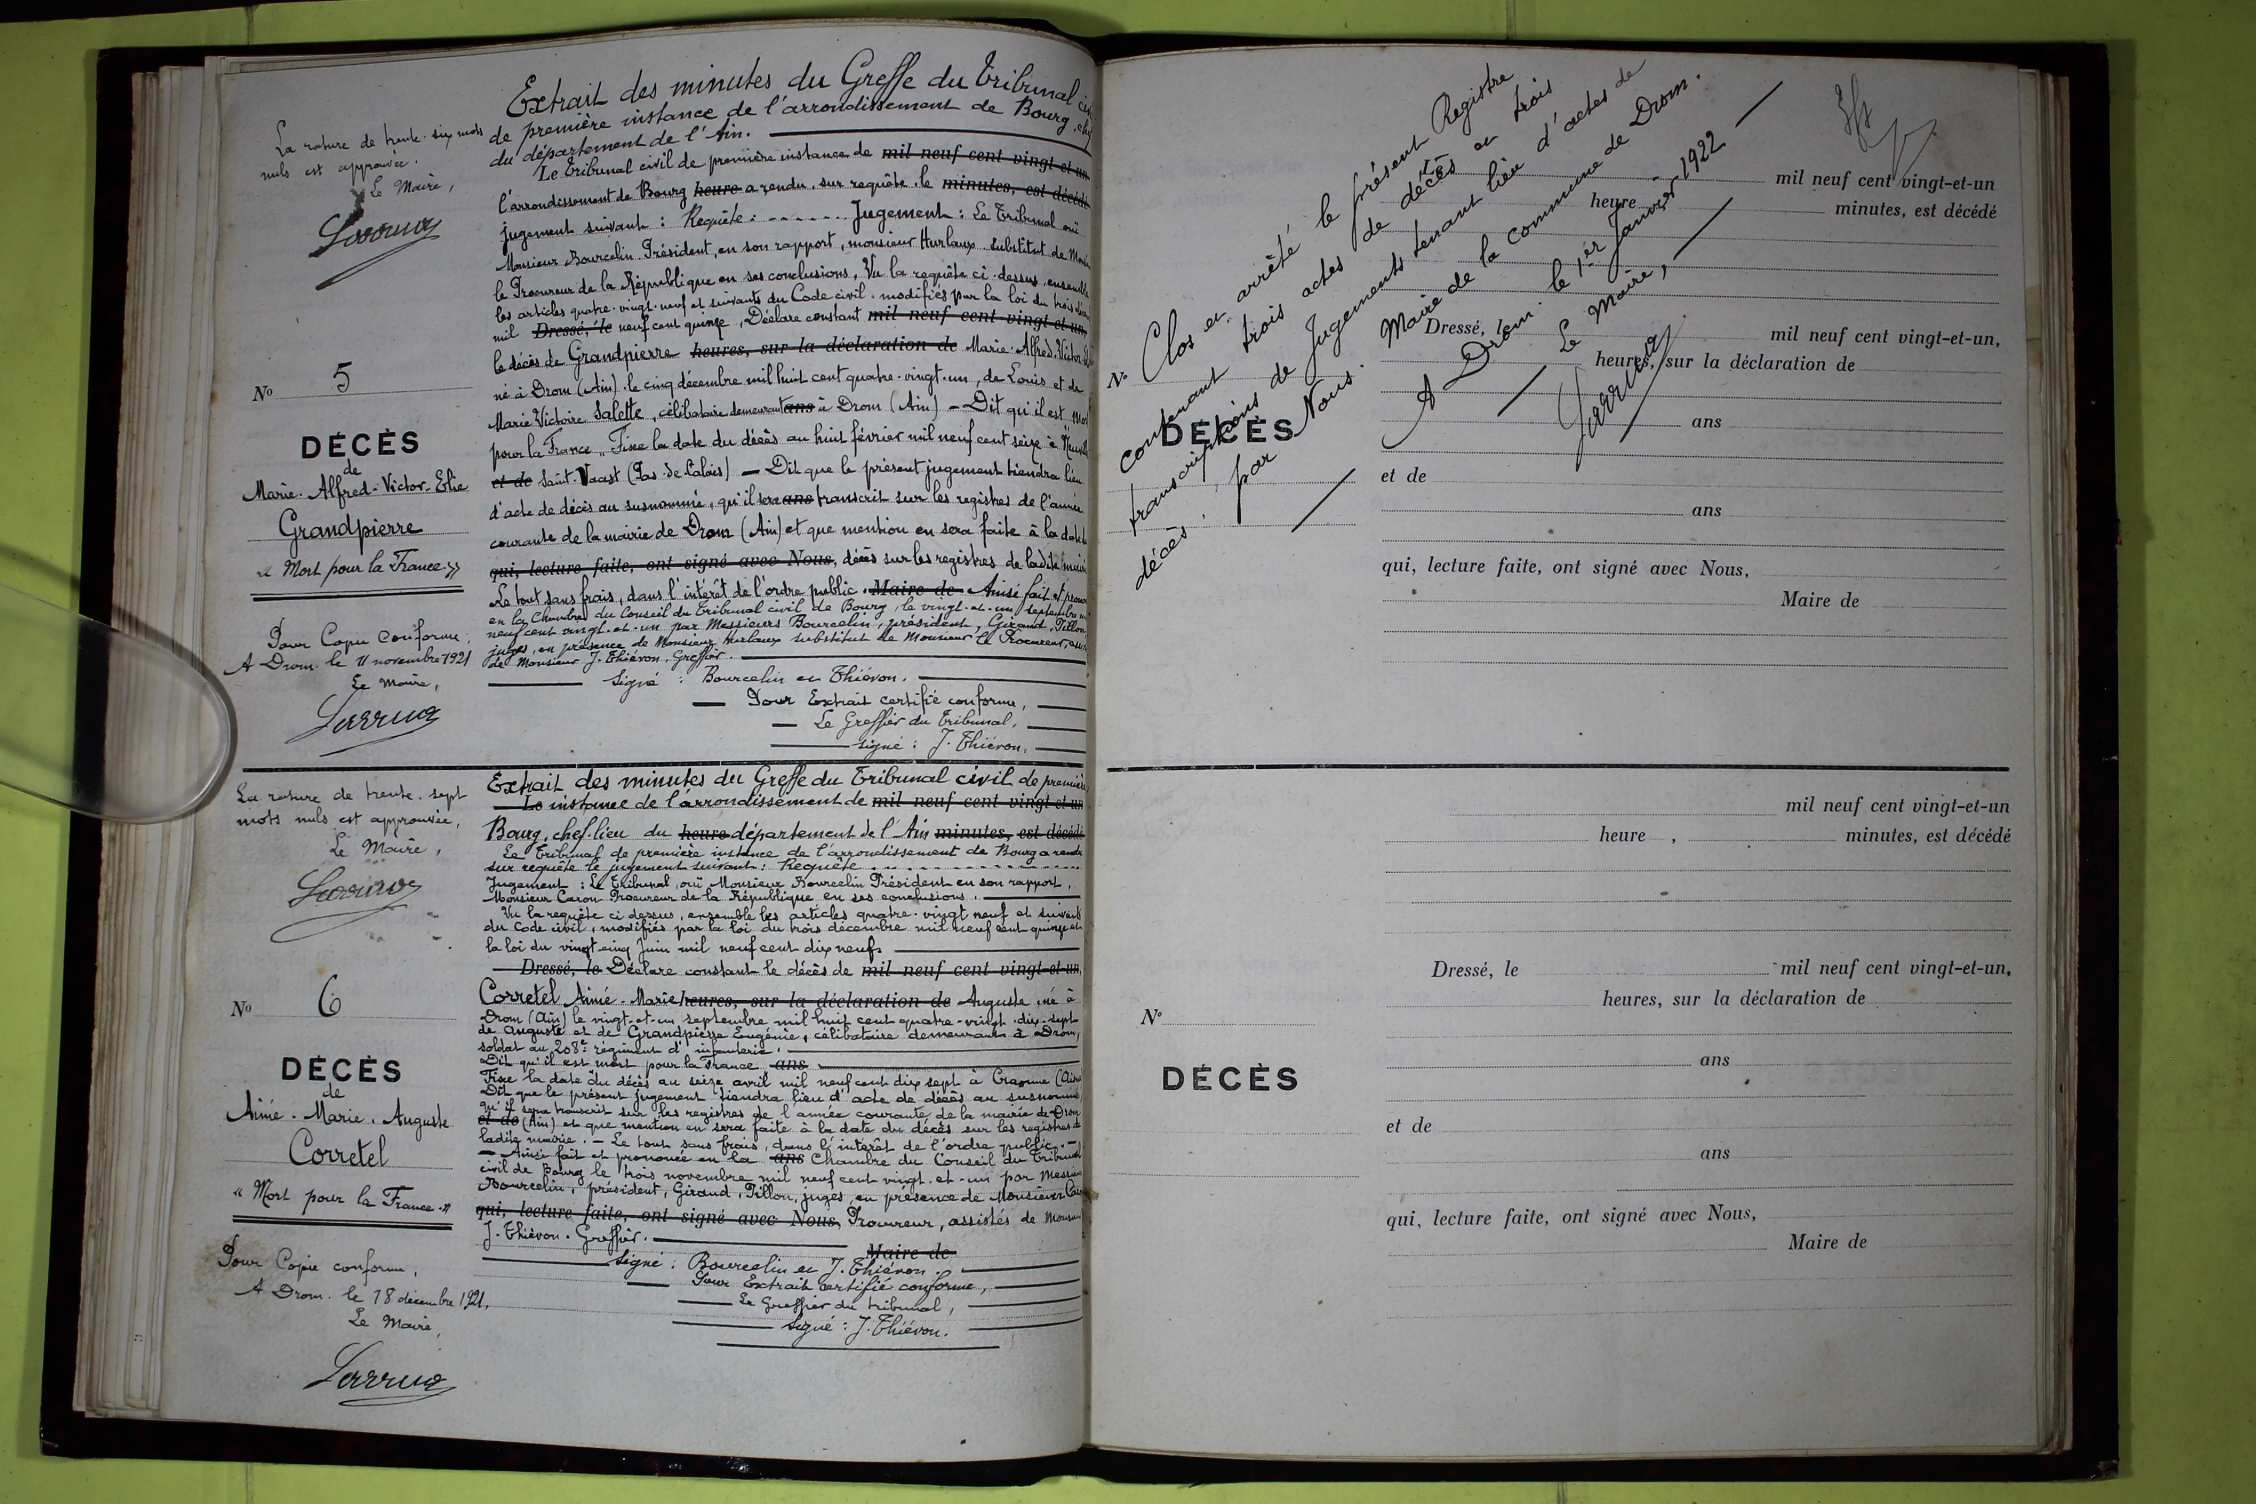 La rature de trente-six mots
nuls est approuvée.
Le Maire,
No 5
DÉCÈS
de
Marie-Alfred-Victor-Elie
Grandpierre
« Mort pour la France »
Pour Copie conforme,
A Drom le 11 novembre 1921
Le Maire,
Extrait des minutes du Greffe du Tribunal
de première instance de l'arrondissement de Bourg,
du département de l'Ain.
Le Tribunal civil de première instance de mil neuf cent vingt-et-un
l'arrondissement de Bourg heure a rendu, sur requête, le minutes, est décédé
jugement suivant : Requête : - - - - - - Jugement : Le Tribunal ouï
Monsieur Bourcelin Président, en son rapport, monsieur Hurlaux substitut de
le Procureur de la République en ses conclusions, Vu la requête ci-dessus, ensemble
les articles quatre-vingt-neuf et suivants du Code civil, modifiés par la loi du trois
mil Dressé, le neuf cent quinze, Déclare constant mil neuf cent vingt-et-un,
le décès de Grandpierre heures, sur la déclaration de Marie-Alfred-Victor
né à Drom (Ain) le cinq décembre mil huit cent quatre-vingt-un, de Louis et de
Marie Victoire Salette, célibataire demeurant ans à Drom (Ain) – Dit qu'il est
pour la France – Fixe la date du décès au huit février mil neuf cent seize à
et de Saint-Vaast (Pas-de-Calais) – Dit que le présent jugement tiendra lieu
d'acte de décès au susnommé, qu'il sera ans transcrit sur les registres de l'année
courante de la mairie de Drom (Ain) et que mention en sera faite à la date
qui, lecture faite, ont signé avec Nous, décès sur les registres de ladite
Le tout sans frais, dans l'intérêt de l'ordre public. Maire de Ainsi fait et
en la Chambre du Conseil du Tribunal civil de Bourg, le vingt-et-un septembre
neuf cent vingt-et-un par Messieurs Bourcelin, président, Giraud, Tillon
juges, en présence de Monsieur Hurlaux substitut de Monsieur le Procureur,
de Monsieur J. Thiévon, Greffier.
Signé : Bourcelin et Thiévon.
Pour Extrait certifié conforme,
Le Greffier du Tribunal,
signé : J. Thiévon.
La rature de trente-sept
mots nuls est approuvée,
Le Maire,
No 6
DÉCÈS
de
Aimé-Marie-Auguste
Corretel
« Mort pour la France »
Pour Copie conforme,
A Drom le 18 décembre 1921,
Le Maire,
Extrait des minutes du Greffe du Tribunal civil de première
Le instance de l'arrondissement de mil neuf cent vingt-et-un
Bourg, chef-lieu du heure département de l'Ain minutes, est décédé
Le Tribunal de première instance de l'arrondissement de Bourg a rendu
sur requête le jugement suivant : Requête - - - - - -
Jugement : Le Tribunal, ouï Monsieur Bourcelin Président en son rapport,
Monsieur Caron Procureur de la République en ses conclusions.
Vu la requête ci-dessus, ensemble les articles quatre-vingt neuf et suivants
du Code civil, modifiés par la loi du trois décembre mil neuf cent quinze et
la loi du vingt-cinq Juin mil neuf cent dix neuf.
Dressé, le Déclare constant le décès de mil neuf cent vingt-et-un,
Corretel Aimé-Marie heures, sur la déclaration de Auguste, né à
Drom (Ain) le vingt-et-un septembre mil huit cent quatre-vingt-dix-sept
de Auguste et de Grandpierre Eugénie, célibataire demeurant à Drom,
soldat au 208e régiment d'infanterie.
Dit qu'il est mort pour la France ans
Fixe la date du décès au seize avril mil neuf cent dix sept à Craonne
Dit que le présent jugement tiendra lieu d'acte de décès au susnommé,
qu'il sera transcrit sur les registres de l'année courante de la mairie de Drom
et de (Ain) et que mention en sera faite à la date du décès sur les registres de
ladite mairie. – Le tout sans frais, dans l'intérêt de l'ordre public. –
– Ainsi fait et prononcé en la ans Chambre du Conseil du Tribunal
civil de Bourg le trois novembre mil neuf cent vingt-et-un par Messieurs
Bourcelin, président, Giraud, Tillon, juges, en présence de Monsieur
qui, lecture faite, ont signé avec Nous, Procureur, assistés de Monsieur
J. Thiévon, Greffier.
Maire de
Signé : Bourcelin et J. Thiévon.
Pour Extrait certifié conforme,
Le Greffier du tribunal,
Signé : J. Thiévon.
Clos et arrêté le présent Registre
contenant trois actes de décès et trois
transcriptions de Jugements tenant lieu d'actes de
décès, par Nous. Maire de la commune de Drom.
A Drom le 1er Janvier 1922
Le Maire,
mil neuf cent vingt-et-un
heure
minutes, est décédé
Dressé, le
mil neuf cent vingt-et-un,
heures, sur la déclaration de
No
DÉCÈS
ans
et de
ans
qui, lecture faite, ont signé avec Nous,
Maire de
mil neuf cent vingt-et-un
heure , minutes, est décédé
Dressé, le mil neuf cent vingt-et-un,
heures, sur la déclaration de
No
ans
DÉCÈS
et de
ans
qui, lecture faite, ont signé avec Nous,
Maire de